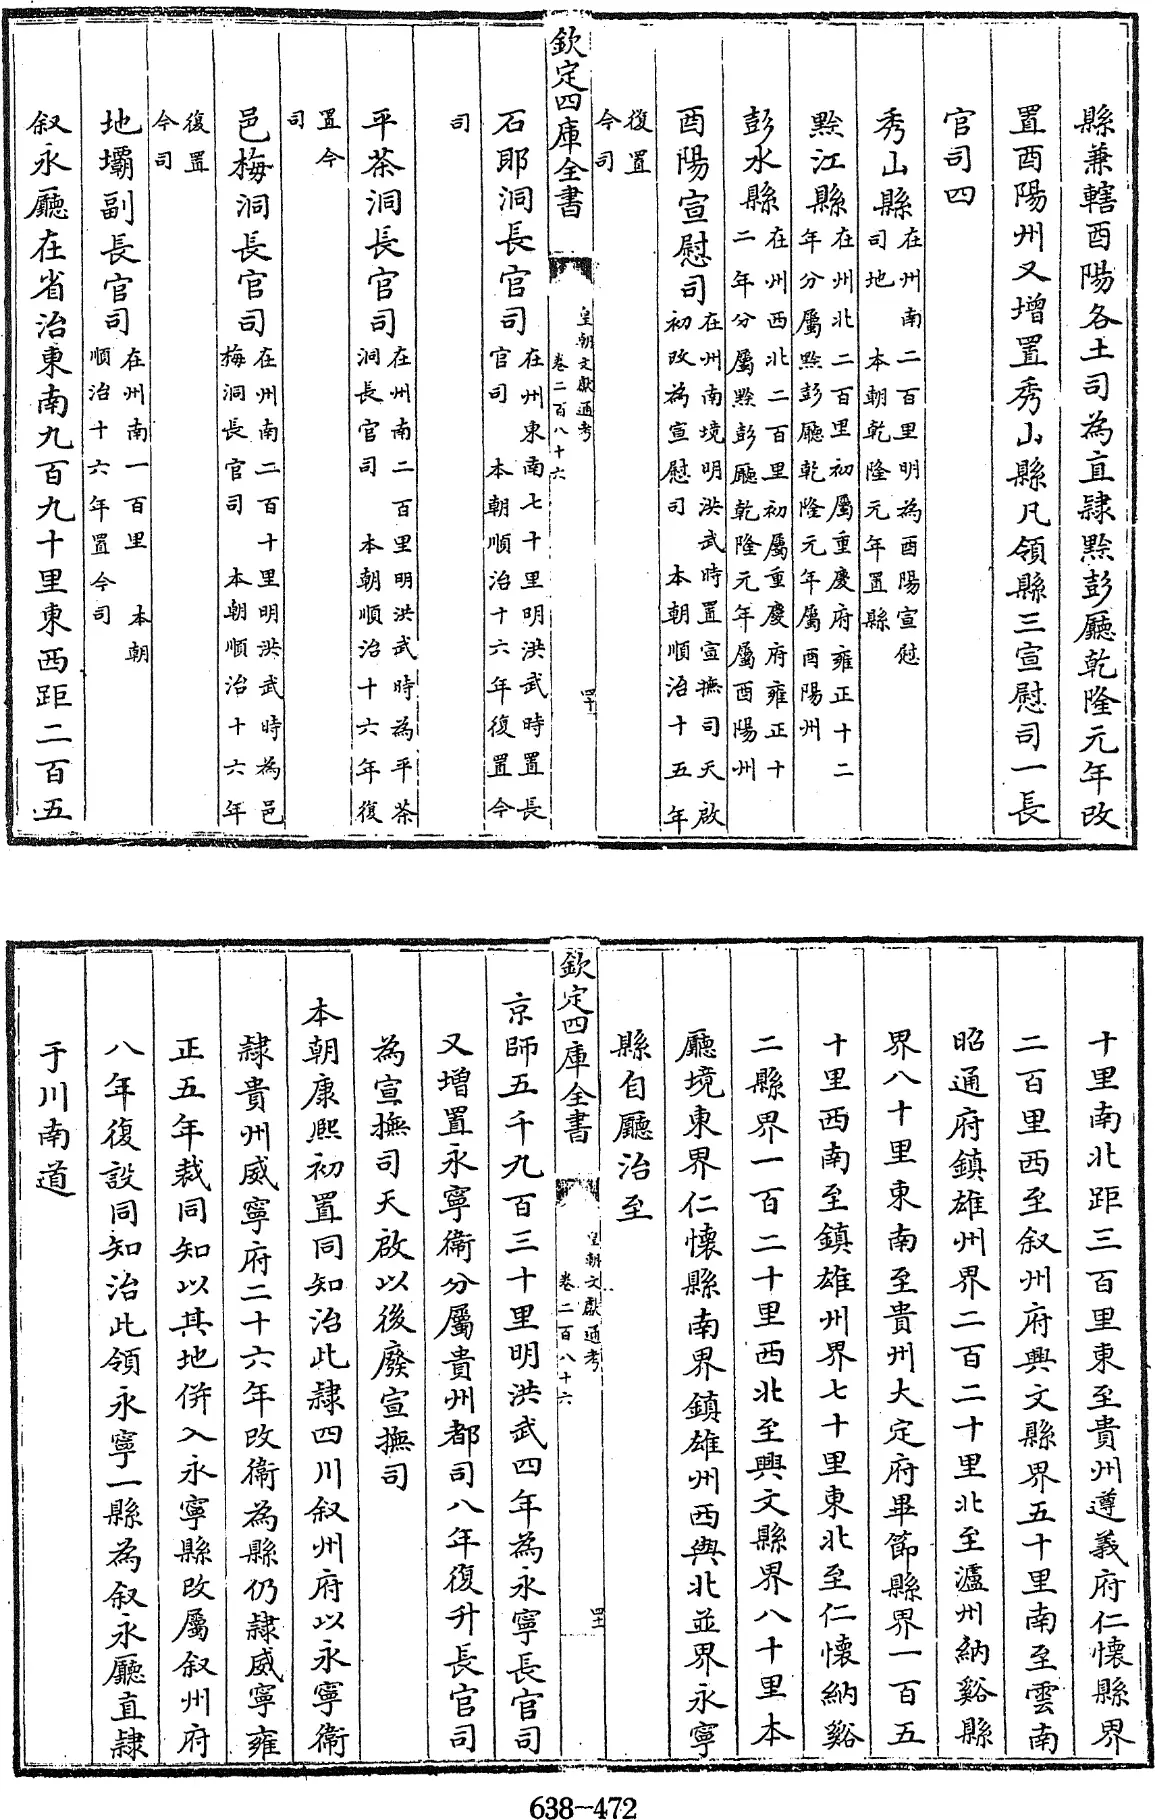 縣兼轄酉陽各土司為直隸黔彭廳乾隆元年改
置酉陽州又增置秀山縣凡領縣三宣慰司一長
官司四
秀山縣在州南二百里明為酉陽宣慰司地 本朝乾隆元年置縣
黔江縣在州北二百里初屬重慶府雍正十二年分屬黔彭廳乾隆元年屬酉陽州
彭水縣在州西北二百里初屬重慶府雍正十二年分屬黔彭廳乾隆元年屬酉陽州
酉陽宣慰司在州南境明洪武時置宣撫司天啟初改為宣慰司 本朝順治十五年
復置今司
欽定四庫全書 皇朝文獻通考 卷二百八十六 四十
石耶洞長官司在州東南七十里明洪武時置長官司 本朝順治十六年復置今
司
平茶洞長官司在州南二百里明洪武時為平茶洞長官司 本朝順治十六年復
置今司
邑梅洞長官司在州南二百十里明洪武時為邑梅洞長官司 本朝順治十六年
復置今司
地壩副長官司在州南一百里 本朝順治十六年置今司
叙永廳在省治東南九百九十里東西距二百五
十里南北距三百里東至貴州遵義府仁懷縣界
二百里西至叙州府興文縣界五十里南至雲南
昭通府鎮雄州界二百二十里北至瀘州納谿縣
界八十里東南至貴州大定府畢節縣界一百五
十里西南至鎮雄州界七十里東北至仁懷納谿
二縣界一百二十里西北至興文縣界八十里本
廳境東界仁懷縣南界鎮雄州西與北並界永寧
縣自廳治至
欽定四庫全書 皇朝文獻通考 卷二百八十六 四十一
京師五千九百三十里明洪武四年為永寧長官司
又增置永寧衞分屬貴州都司八年復升長官司
為宣撫司天啟以後廢宣撫司
本朝康熙初置同知治此隸四川叙州府以永寧衞
隸貴州威寧府二十六年改衞為縣仍隸威寧雍
正五年裁同知以其地併入永寧縣改屬叙州府
八年復設同知治此領永寧一縣為叙永廳直隸
于川南道
638-472